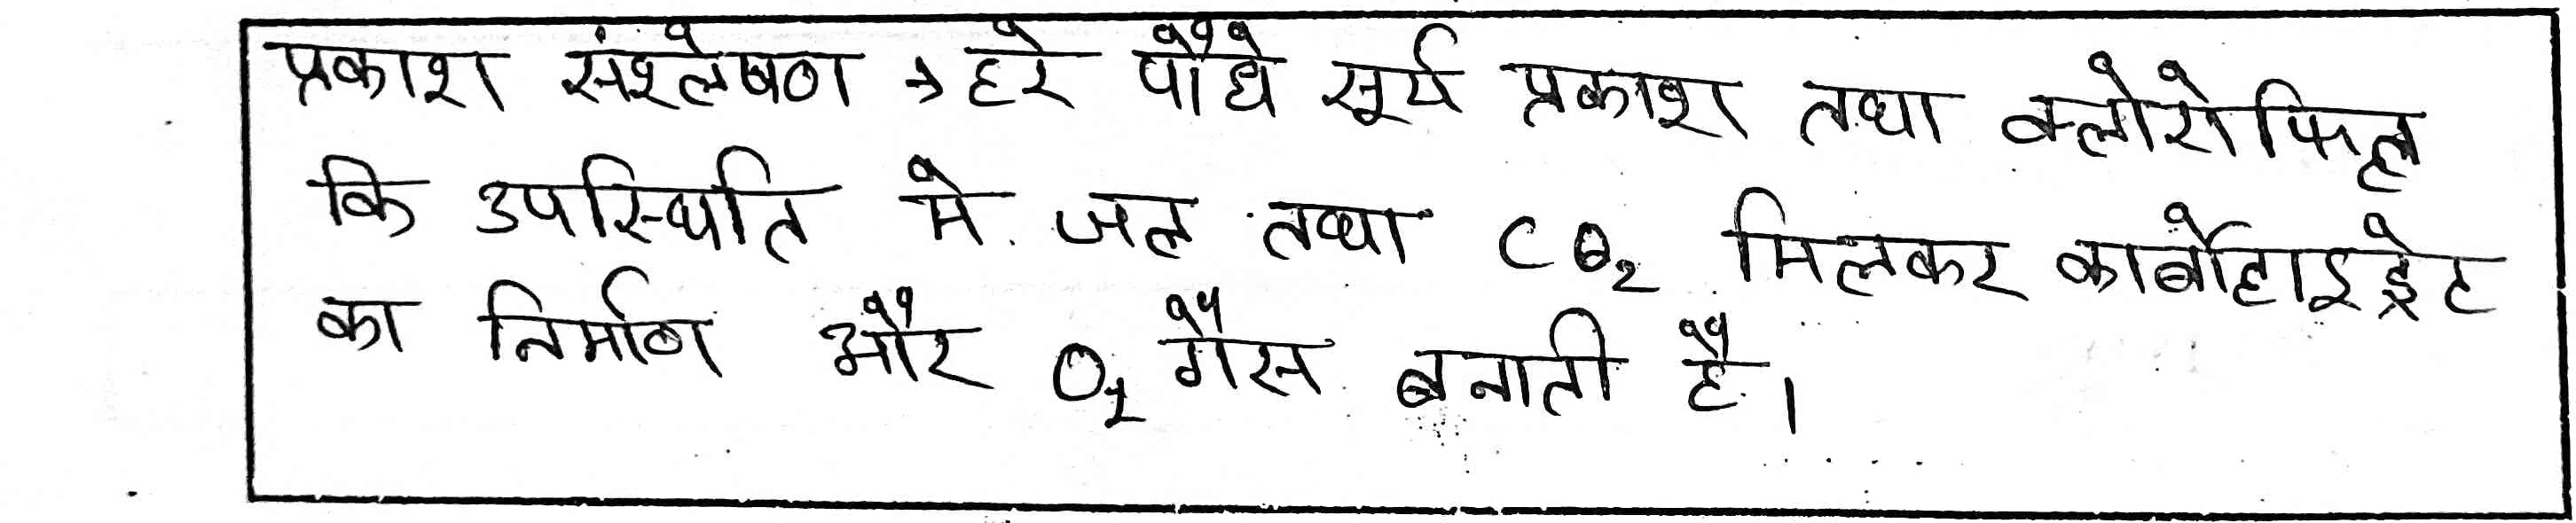 प्रकाश संश्लेषण → हरे पौधे सूर्य प्रकाश तथा क्लोरोफिल
कि उपस्थिति मे जल तथा CO₂ मिलकर कार्बोहाइड्रेट
का निर्माण और O₂ गैस बनाती है।